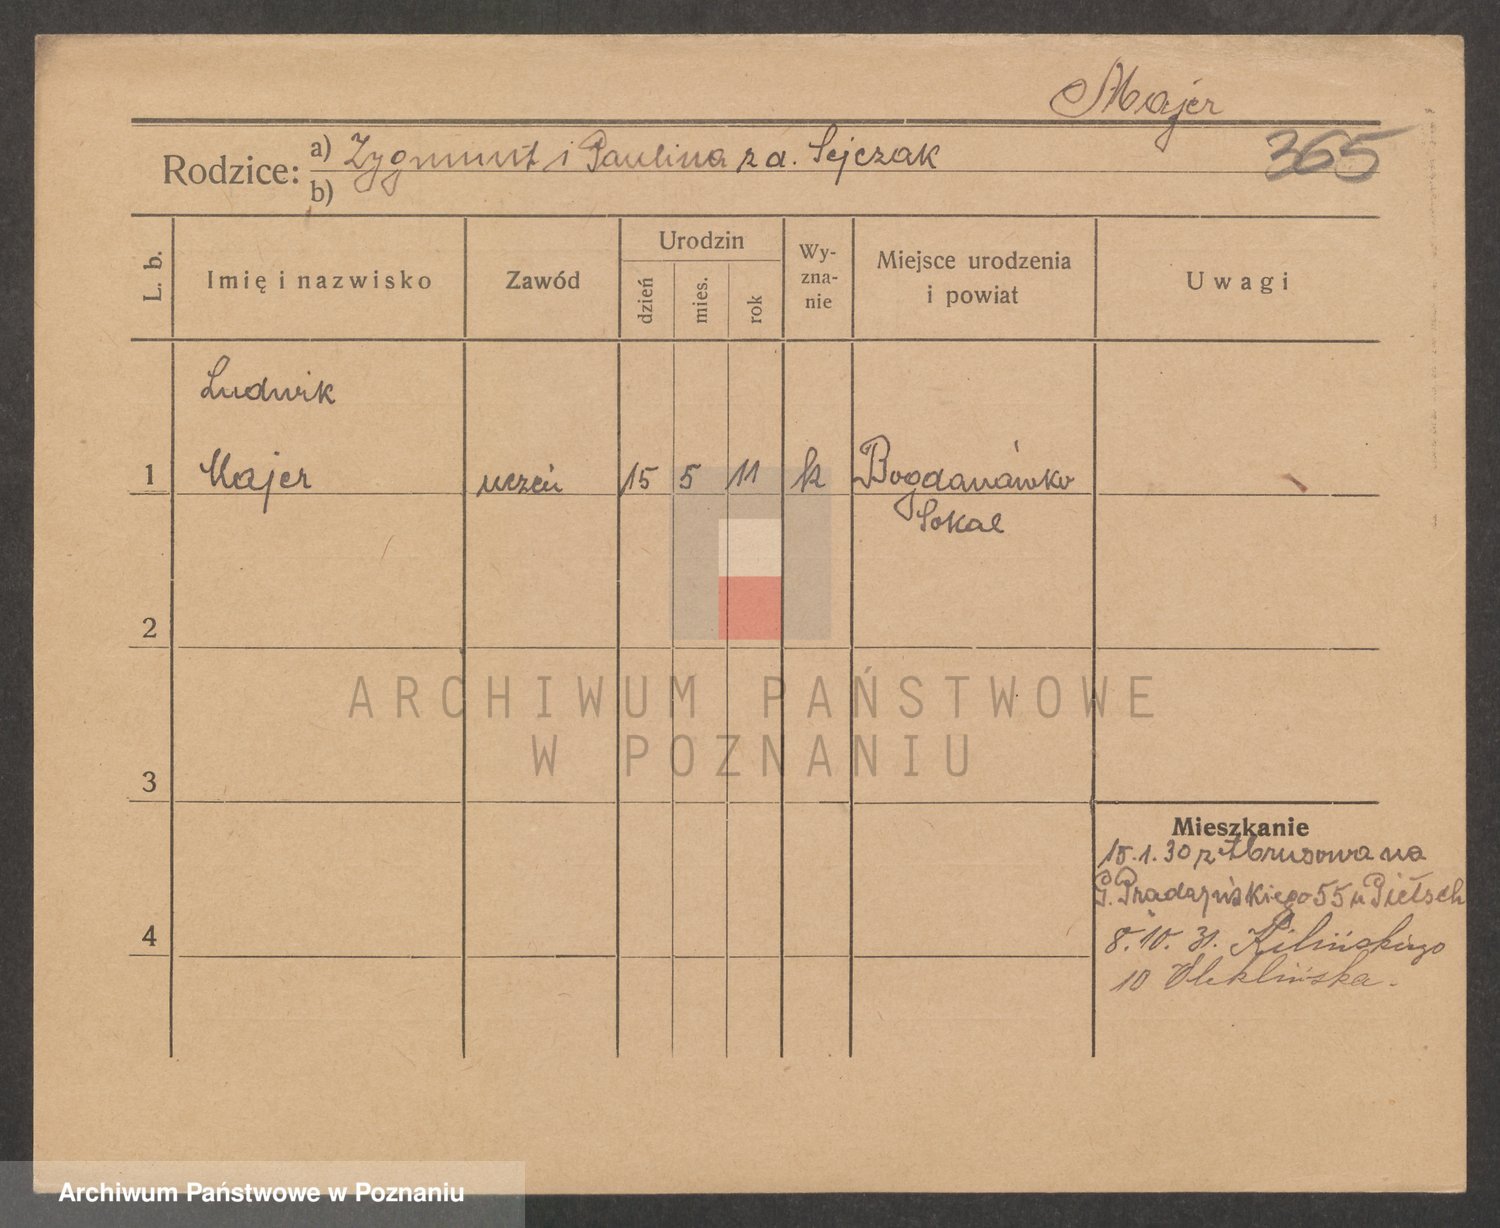 Majer
365
Rodzice: a) Zygmunt i Paulina z d. Sejczak
b)
L. b.
Imię i nazwisko
Zawód
Urodzin
dzień
mies.
rok
Wy-
zna-
nie
Miejsce urodzenia
i powiat
Uwagi
Ludwik
1 Majer uczeń 15 5 11 k Bogdanówko
Sokal
2
3
4
Mieszkanie
15.1.30 z na
G. Prądzyńskiego 55 u Pietsch
8. 10. 31. Kilińskiego
10
ARCHIWUM PAŃSTWOWE
W POZNANIU
Archiwum Państwowe w Poznaniu